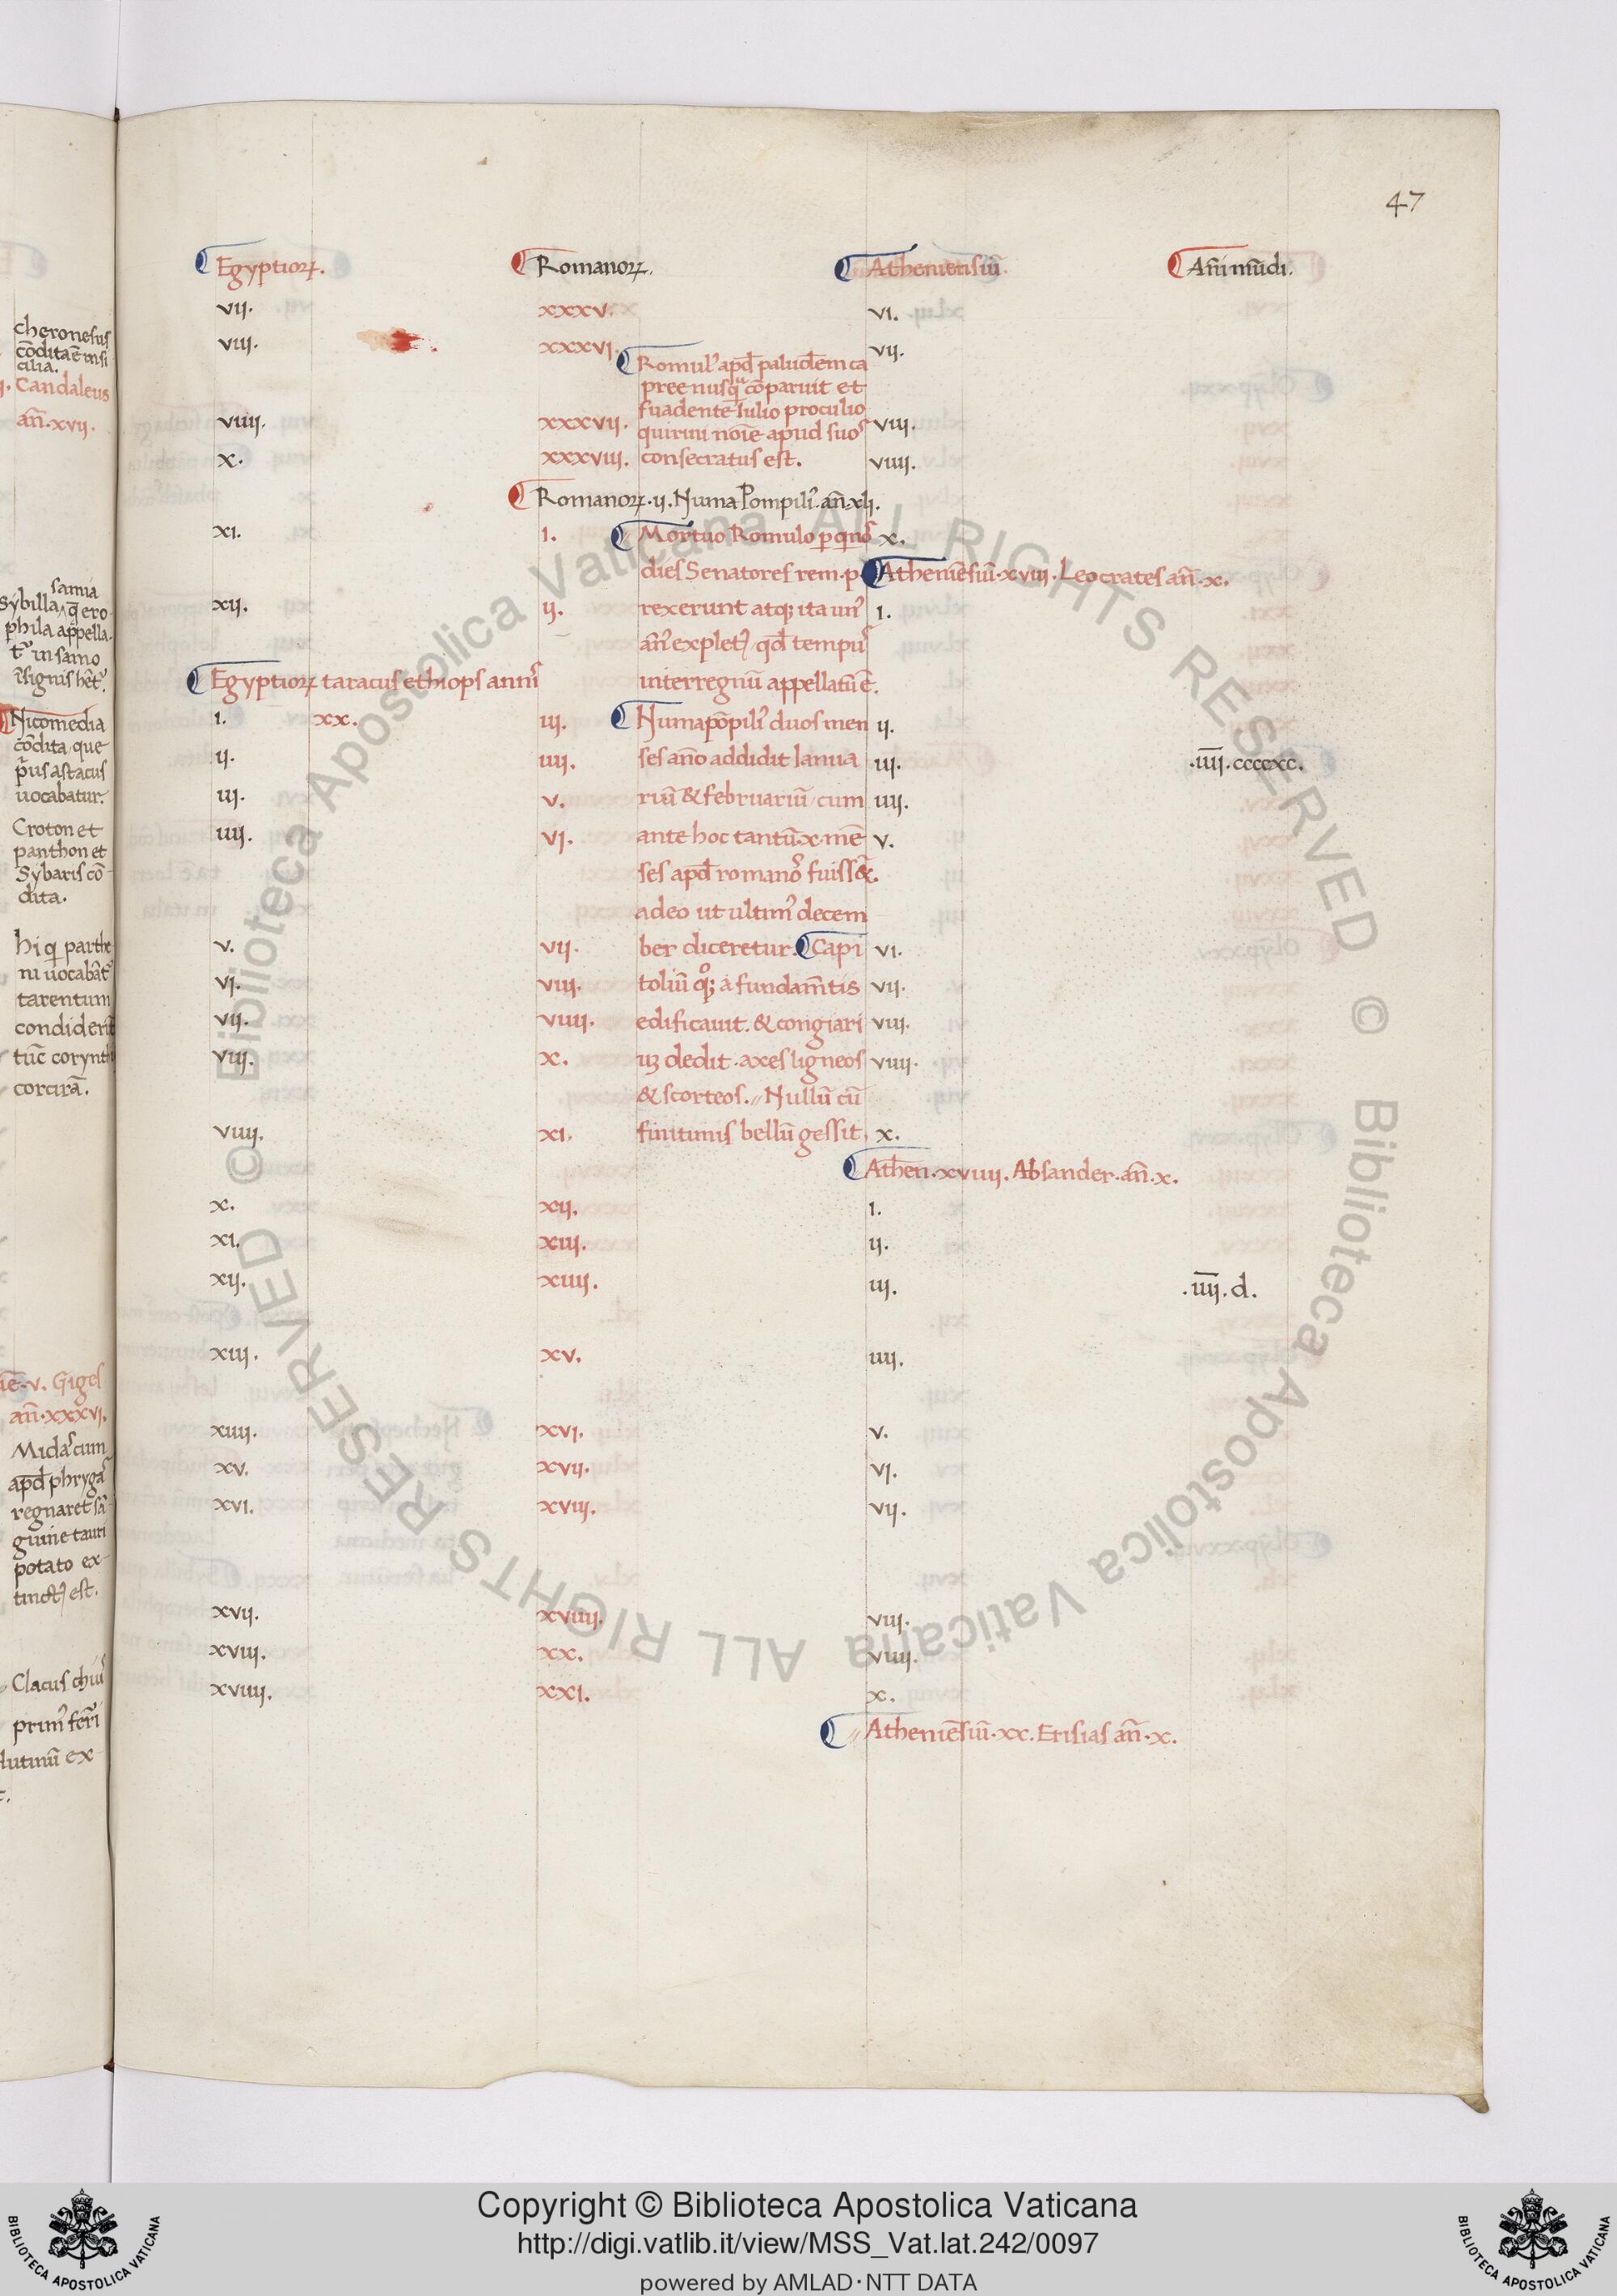 47
Egyptioꝝ. Romanoꝝ. Atheniensiū. Añi mūdi.
vij. xxxv. vi.
viij. xxxvi. vij.
Romul᾿ apd̄ paludem ca
pree nusq̄ cōparuit et
suadente Iulio proculio
viiij. xxxvij. quirini noīe apud suos viij.
x. xxxviij. consecratus est. viiij.
Romanoꝝ. ij. Numa Pompili᾿. añ. xlj.
xi. i. Mortuo Romulo p qnos x.
dies Senatores rem. p Atheniēsiū. xviij. Leocrates añ. x.
xij. ij. rexerunt atq; ita un᾿ i.
añ᾿ explet᾿ / qd̄ temp᾿
Egyptioꝝ taracus ethiops annis interregnū appellatū ē.
i. xx. iij. Numa pōpili᾿ duos men ij.
ij. iiij. ses año addidit Ianua iij. .iiij. ccccxc.
iij. v. riū & februariū / cum iiij.
iiij. vi. ante hoc tantū. x. mē v.
ses apd̄ romanos fuiss&.
adeo ut ultim᾿ decem
v. vij. ber diceretur. Capi vi.
vi. viij. toliū q°; a fundam̄tis vij.
vij. viiij. edificauit. & congiari viij.
viij. x. uꝫ dedit. axes ligneos viiij.
& scorteos. Nullū cū
viiij. xi. finitimis bellū gessit. x.
Athen. xviiij. Absander. añ. x.
x. xij. i.
xi. xiij. ij.
xij. xiiij. iij. .iiij. d.
xiij. xv. iiij.
xiiij. xvi. v.
xv. xvij. vi.
xvi. xviij. vij.
xvij. xviiij. viij.
xviij. xx. viiij.
xviiij. xxi. x.
Atheniēsiū. xx. Erisias añ. x.
cheronesus
cōdita ē in si
cilia.
Candaleus
añ. xvij.
samia
Sybilla q̄ ero
phila appella
t᾿ in samo
īsignis hēt᾿.
Nicomedia
cōdita / que
p̄us astacus
uocabatur.
Croton et
panthon et
Sybaris cō
dita.
hi q parthe
ni uocabāt᾿
tarentum
condiderūt
tūc corynth
corcirā.
v. Giges
añ. xxxvi.
Midas cum
apd̄ phrygas
regnaret sā
guine tauri
potato ex-
tinct᾿ est.
Clacus chius
prim᾿ ferri
lutinū ex-
© Biblioteca Apostolica Vaticana ALL RIGHTS RESERVED © Biblioteca Apostolica Vaticana ALL RIGHTS RESERVED
Copyright © Biblioteca Apostolica Vaticana
http://digi.vatlib.it/view/MSS_Vat.lat.242/0097
powered by AMLAD·NTT DATA
BIBLIOTECA APOSTOLICA VATICANA
BIBLIOTECA APOSTOLICA VATICANA